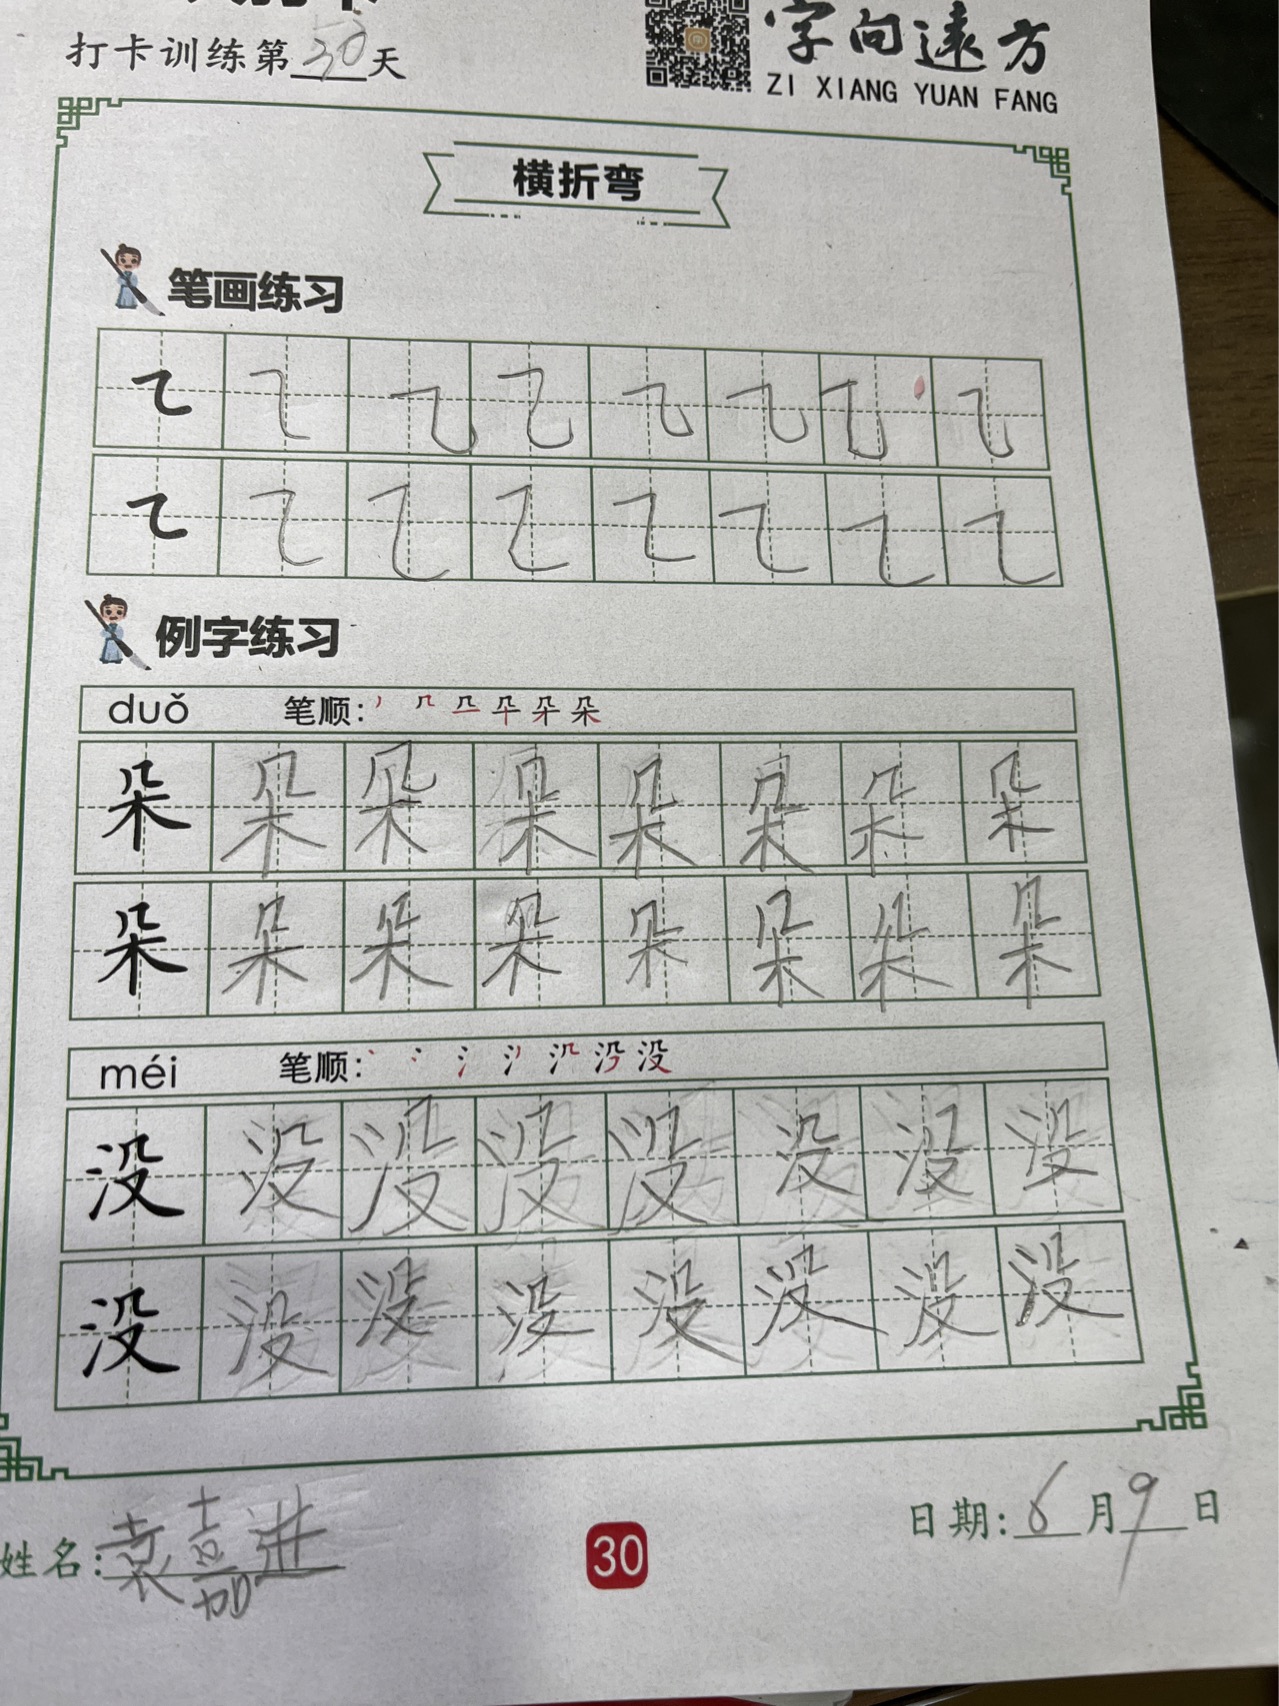 打卡训练第30天
字向远方
ZI XIANG YUAN FANG
横折弯
笔画练习
例字练习
duǒ 笔顺:
朵 朵 朵 朵 朵 朵 朵 朵
朵 朵 朵 朵 朵 朵 朵 朵
méi 笔顺:
没 没 没 没 没 没 没 没
没 没 没 没 没 没 没 没
姓名:袁嘉进
30
日期:6月9日